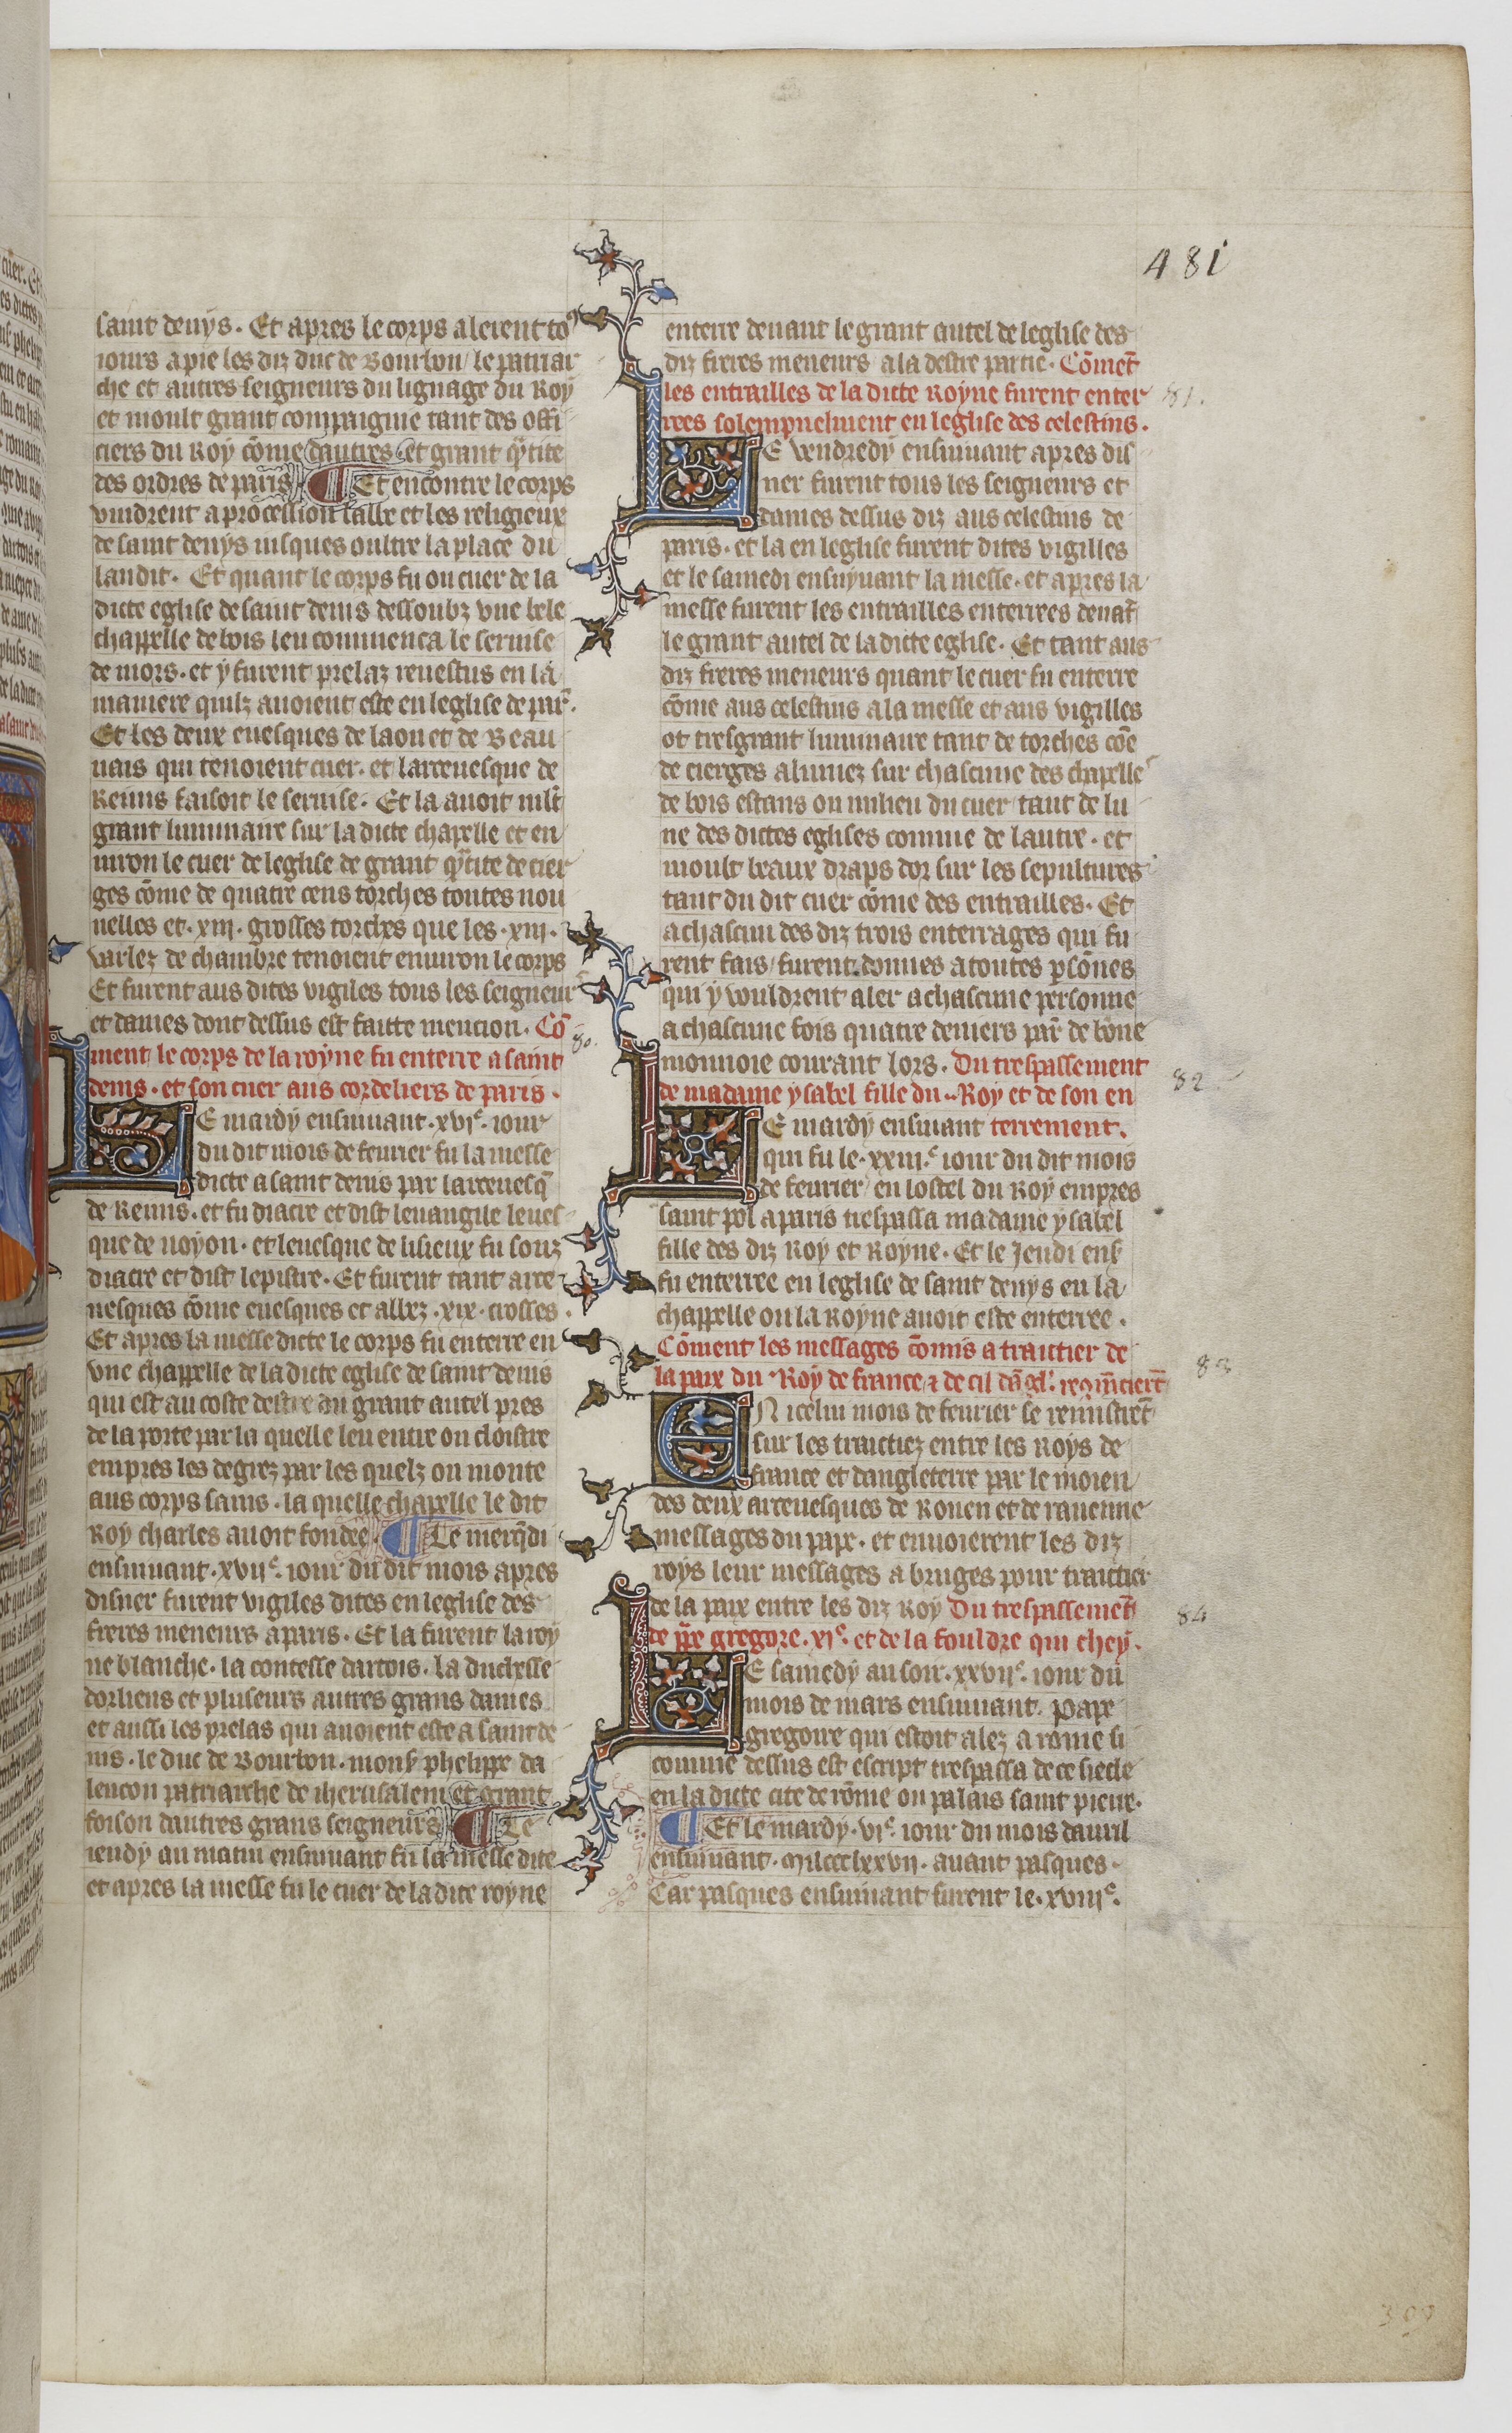 481
saint denys. Et apres le corps alerent to9
iours a pie les diz duc de Bourbon le patriar
che et autres seigneurs du lignage du Roy
et moult grant compaignie tant des offi
ciers du Roy cōme dautres et grant q̄tite
des ordres de paris ¶ Et encontre le corps
vindrent a procession labbe et les religieux
de saint denys iusques oultre la place du
landit. Et quant le corps fu ou cuer de la
dicte eglise de saint denis dessoubz vne bele
chappelle de bois len commenca le seruise
de mors. et y furent prelaz reuestus en la
maniere quilz auoient este en leglise de par̄.
Et les deux euesques de laon et de Beau
uais qui tenoient cuer. et larceuesque de
Reims faisoit le seruise. Et la auoit mlt̄
grant luminaire sur la dicte chapelle et en
uiron le cuer de leglise de grant q̄tite de cier
ges cōme de quatre cens torches toutes nou
uelles et. xiij. grosses torches que les .xiij.
varlez de chambre tenoient enuiron le corps
Et furent aus dites vigiles tous les seigneurs
et dames dont dessus est faitte mencion. Cō
80.
ment le corps de la royne fu enterre a saint
denis. et son cuer aus cordeliers de paris.
LE mardy ensiuuant .xvi.e iour
du dit mois de feurier fu la messe
dicte a saint denis par larceuesq̄
de Reims. et fu diacre et dist leuangile leues
que de noyon. et leuesque de lisieux fu souz
diacre et dist lepistre. Et furent tant arce
uesques cōme euesques et abbez .xix. crosses.
Et apres la messe dicte le corps fu enterre en
vne chappelle de la dicte eglise de saint denis
qui est au coste destre du grant autel pres
de la porte par la quelle len entre ou cloistre
empres les degrez par les quelz on monte
aus corps sains. la quelle chapelle le dit
Roy charles auoit fondee. ¶ Le merq̄di
ensiuuant .xvii.e iour du dit mois apres
disner furent vigiles dites en leglise des
freres meneurs a paris. Et la furent la roy
ne blanche. la contesse dartois. la duchesse
dorliens et pluseurs autres grans dames
et aussi les prelas qui auoient este a saint de
nis. le duc de Bourbon. mons̄ phelippe da
lencon patriarche de iherusalem et grant
foison dautres grans seigneurs ¶ Le
ieudy au matin ensiuuant fu la messe dite
et apres la messe fu le cuer de la dite royne
enterre deuant le grant autel de leglise des
diz freres meneurs a la destre partie. Cōmēt
les entrailles de la dicte Royne furent enter
81.
rees solempnelment en leglise des celestins.
LE vendredy ensiuuant apres dis
ner furent tous les seigneurs et
dames dessus diz aus celestins de
paris. et la en leglise furent dites vigilles
et le samedi ensuyuant la messe. et apres la
messe furent les entrailles enterrees deuāt
le grant autel de la dicte eglise. Et tant aus
diz freres meneurs quant le cuer fu enterre
cōme aus celestins a la messe et aus vigilles
ot tresgrant luminaire tant de torches cōe
de cierges alumez sur chascune des chapelles
de bois estans ou milieu du cuer tant de lu
ne des dictes eglises comme de lautre. et
moult beaux draps dor sur les sepultures
tant du dit cuer cōme des entrailles. Et
a chascun des diz trois enterrages qui fu
rent fais furent donnes a toutes p̄sōnes
qui y vouldrent aler a chascune personne
a chascune fois quatre deniers par̄ de bōne
monnoie courant lors. Du trespassement
de madame ysabel fille du Roy et de son en
82
LE mardy ensiuant terrement.
qui fu le .xxiii.e iour du dit mois
de feurier en lostel du Roy empres
saint pol a paris trespassa madame ysabel
fille des diz Roy et Royne. Et le Jeudi ens̄
fu enterree en leglise de saint denys en la
chappelle ou la Royne auoit este enterree.
Cōment les messages cōmis a traittier de
83
la paix du Roy de france ⁊ de cil dāgl'. req̄m̄cierēt
EN icelui mois de feurier se remistrēt
sur les traictiez entre les Roys de
france et dangleterre par le moien
des deux arceuesques de Rouen et de rauenne
messages du pape. et enuoierent les diz
roys leur messages a bruges pour traictier
de la paix entre les diz Roy Du trespassemēt
84
de ppe gregore .xi.e et de la fouldre qui chey.
LE samedy au soir .xxvii.e iour du
mois de mars ensiuuant. Pape
gregoire qui estoit alez a rome si
comme dessus est escript trespassa de ce siecle
en la dicte cite de rōme ou palais saint pierre.
¶ Et le mardy .vi.e iour du mois dauril
ensiuuant. mil ccc lxxvii. auant pasques.
Car pasques ensiuuant furent le .xviii.e
399